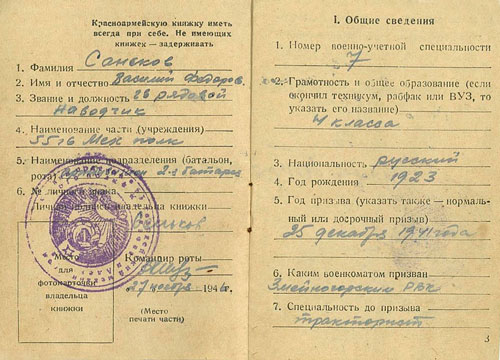 Красноармейскую книжку иметь
всегда при себе. Не имеющих
книжек — задерживать
1. Фамилия Саньков
2. Имя и отчество Василий Федоров.
3. Звание и должность гв рядовой
Наводчик
4. Наименование части (учреждения)
55 гв Мех полк
5. Наименование подразделения (батальон,
рота) 2-я батарея
6. № личного знака
Личная подпись владельца книжки
Саньков
Место
для
фотокарточки
владельца
книжки
Командир роты
27 ноября 1946 г.
(Место
печати части)
I. Общие сведения
1. Номер военно-учетной специальности
7
2. Грамотность и общее образование (если
окончил техникум, рабфак или ВУЗ, то
указать его название)
4 класса
3. Национальность русский
4. Год рождения 1923
5. Год призыва (указать также — нормаль-
ный или досрочный призыв)
25 декабря 1941 года
6. Каким военкоматом призван
Змейногорским РВК
7. Специальность до призыва
тракторист
3